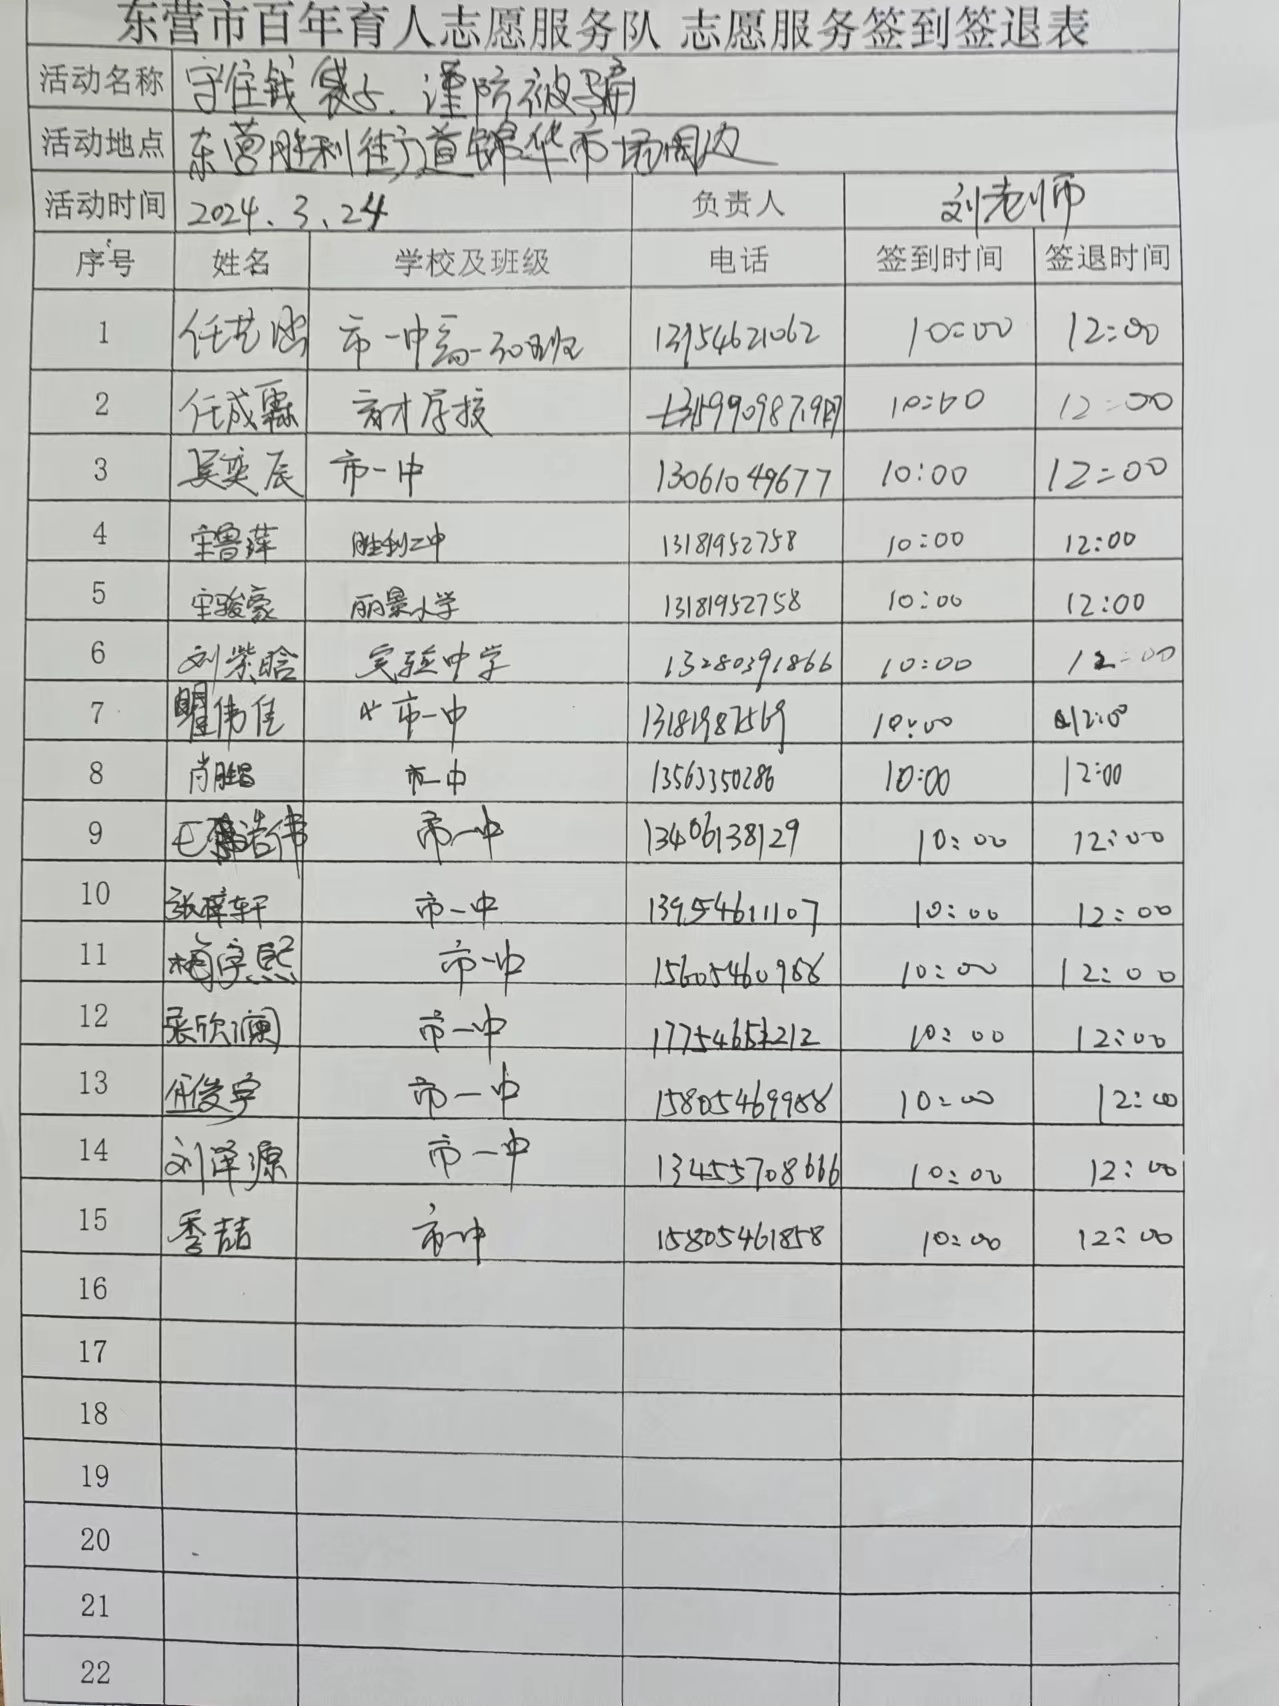 东营市百年育人志愿服务队 志愿服务签到签退表
活动名称 守住钱袋子、谨防被骗
活动地点 东营胜利街道锦华市场周边
活动时间 2024.3.24 负责人 刘老师
序号 姓名 学校及班级 电话 签到时间 签退时间
1 任艺涵 市一中高一30班 13954621062 10:00 12:00
2 任成霖 育才学校 10:00 12:00
3 吴奕辰 市一中 13061049677 10:00 12:00
4 宋鲁萍 胜利二中 13181952758 10:00 12:00
5 宋骏豪 丽景小学 13181952758 10:00 12:00
6 刘紫晗 实验中学 13280391866 10:00 12:00
7 瞿伟佳 市一中 13181987569 10:00 12:00
8 肖胜昌 市一中 13563350286 10:00 12:00
9 浩伟 市一中 13406138129 10:00 12:00
10 张梓轩 市一中 13954611107 10:00 12:00
11 梅宇熙 市一中 15605460986 10:00 12:00
12 张欣澜 市一中 10:00 12:00
13 任俊宇 市一中 15805469986 10:00 12:00
14 刘泽源 市一中 13455708666 10:00 12:00
15 季喆 市一中 15805461858 10:00 12:00
16
17
18
19
20
21
22